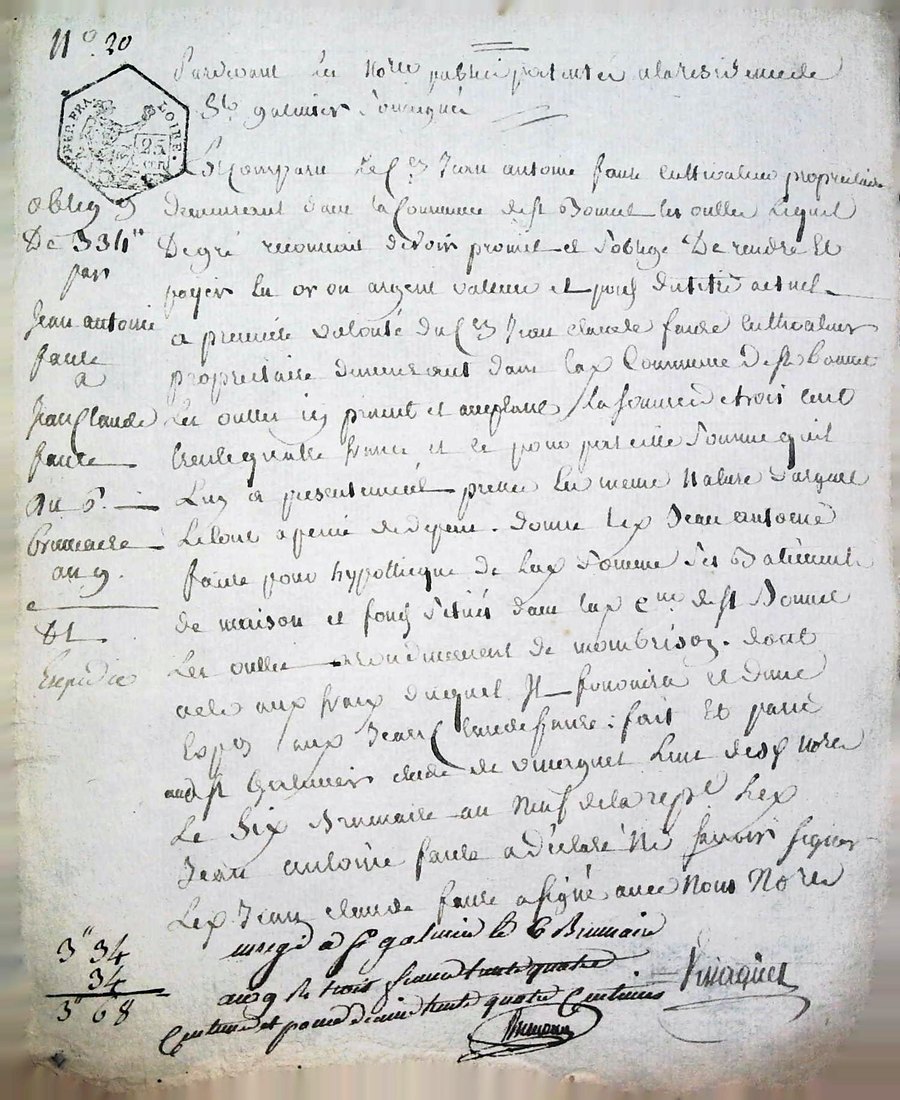 N° 20
Pardevant les Nore publics patentés a la residence de
St galmier Soussigné
REP. FRA. LOIRE.
25 cen
Est Comparu le Cen Jean antoine faure Cultivateur proprietaire
demeurant dans la Commune de st Bonnet les oulles Lequel
De gré reconnoit devoir promet et s'oblige De rendre Et
payer En or ou argent valeur et poids du titre actuel
a premiere volonté du Cen Jean claude faure Cultivateur
proprietaire demeurant dans lad Commune De st bonnet
Les oulles icy present et acceptant la somme de trois cent
trente quatre francs et ce pour pareille Somme qu'il
Luy a presentement pretté En meme Nature d'argent
Le tout a peine de depens. donne led Jean antoine
faure pour hypotheque de lad Somme Ses Batiments
de maison et fonds situés dans lad Cne de st Bonnet
Les oulles arrondissement de montbrison. dont
acte aux fraix duquel Il fournira Et
Exp on aud Jean Claude faure: fait Et passé
aud st Galmier etude de vinaguet L'un desd Nores
Le Six Brumaire an Neuf de la repe Led
Jean antoine faure a déclaré Ne Savoir signer
Led Jean claude faure a signé avec Nous Nores
oblig on
De 334tt
par
Jean antoine
faure
a
Jean Claude
faure
Du 6.
brumaire
an 9.
Et
Expédié
3" 34
34
3" 68
enregé a st galmier le 6 Brumaire
an 9 R trois francs trente quatre
Centimes et pour decime trente quatre Centimes